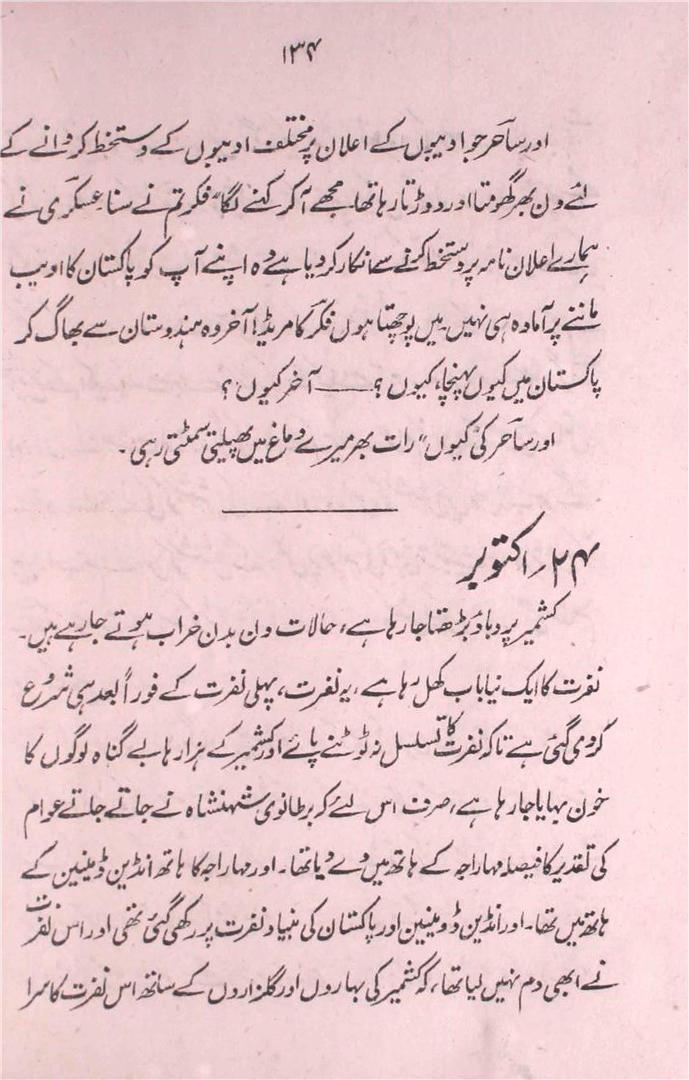 ۱۳۴
اور ساحر جو ادیبوں کے اعلان پر مختلف ادیبوں کے دستخط کروانے کے
لئے دن بھر گھومتا اور دوڑتا رہا تھا، مجھے آ کر کہنے لگا "فکر تم نے سنا عسکری نے
ہمارے اعلان نامہ پر دستخط کرنے سے انکار کر دیا ہے وہ اپنے آپ کو پاکستان کا ادیب
ماننے پر آمادہ ہی نہیں میں پوچھتا ہوں فکر کامریڈ! آخر وہ ہندوستان سے بھاگ کر
پاکستان میں کیوں پہنچا، کیوں ؟ —— آخر کیوں ؟
اور ساحر کی "کیوں" رات بھر میرے دماغ میں پھیلتی سمٹتی رہی ۔
۲۴؍ اکتوبر
کشمیر پر دباؤ بڑھتا جا رہا ہے، حالات دن بدن خراب ہوتے جا رہے ہیں۔
نفرت کا ایک نیا باب کھل رہا ہے ، یہ نفرت، پہلی نفرت کے فوراً بعد ہی شروع
کر دی گئی ہے تاکہ نفرت کا تسلسل نہ ٹوٹنے پائے اور کشمیر کے ہزارہا بے گناہ لوگوں کا
خون بہایا جا رہا ہے، صرف اس لئے کہ برطانوی شہنشاہ نے جاتے جاتے عوام
کی تقدیر کا فیصلہ مہاراجہ کے ہاتھ میں دے دیا تھا۔ اور مہاراجہ کا ہاتھ انڈین ڈومینین کے
ہاتھ میں تھا۔ اور انڈین ڈومینین اور پاکستان کی بنیاد نفرت پر رکھی گئی تھی اور اس نفرت
نے ابھی دم نہیں لیا تھا، کہ کشمیر کی بہاروں اور گلزاروں کے ساتھ اس نفرت کا سرا